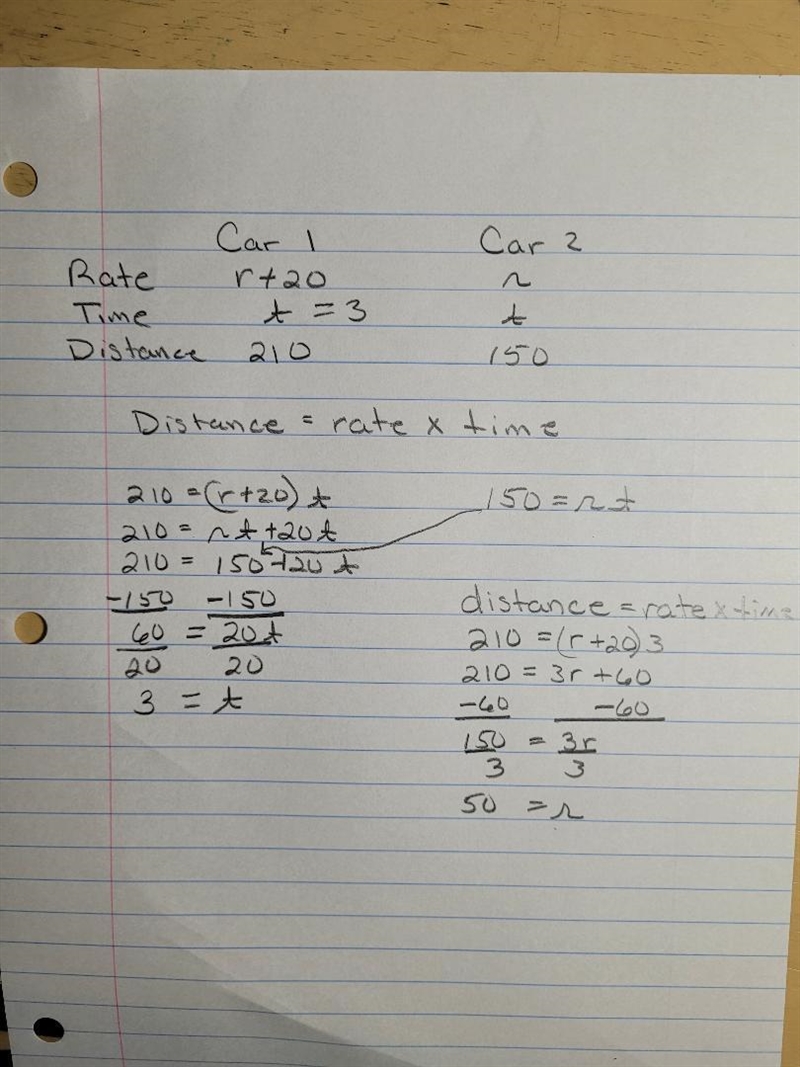 Car 1 Car 2
Rate r+20 r
Time t = 3 t
Distance 210 150
Distance = rate x time
210 = (r+20) t 150 = r t
210 = r t + 20 t
210 = 150 + 20 t
-150 -150
60 = 20t
20 20
3 = t
distance = rate x time
210 = (r+20) 3
210 = 3r + 60
-60 -60
150 = 3r
3 3
50 = r